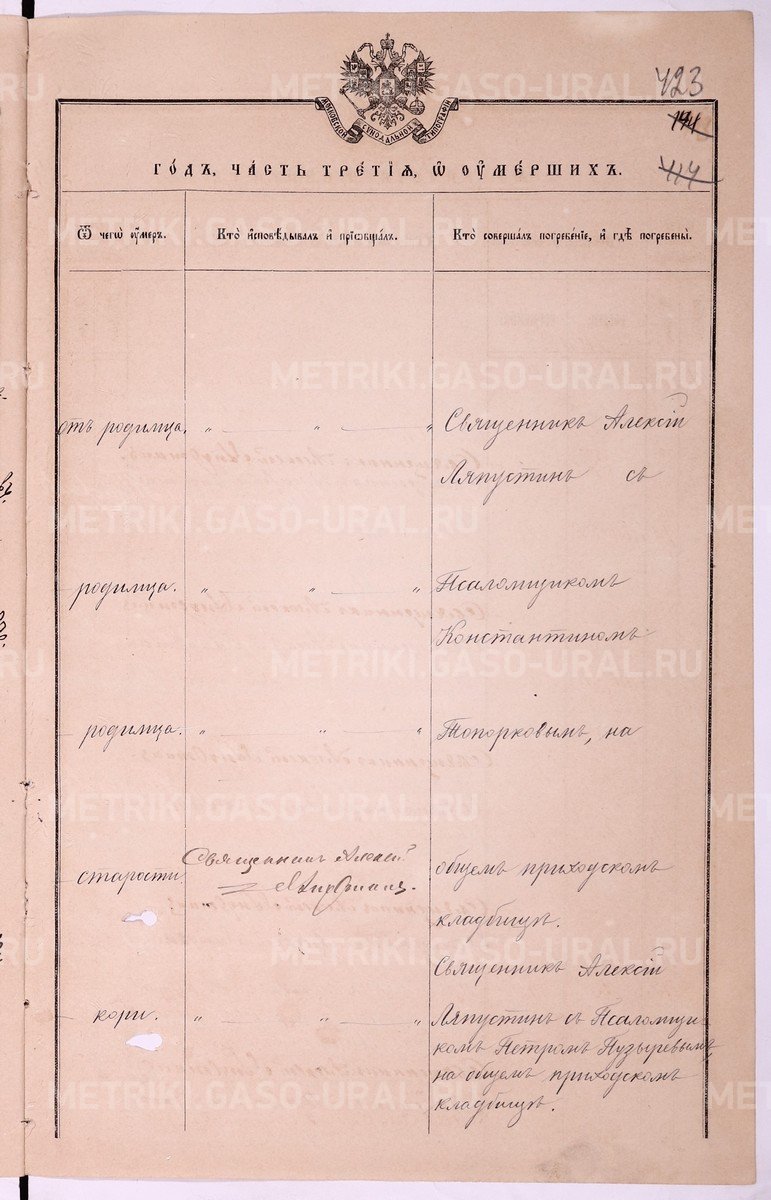 423
144
414
МОСКОВСКОЙ СѴНОДАЛЬНОЙ ТИПОГРАФІИ
ГОДЪ, ЧАСТЬ ТРЕТІЯ, Ѿ ОУМЕРШИХЪ.
Ѿ чегѡ оумеръ.
Кто исповѣдывалъ и пріобщалъ.
Кто совершалъ погребеніе, и гдѣ погребены.
отъ родимца. " — " — "
Священникъ Алексій
Ляпустинъ съ
родимца. " — " — "
Псаломщикомъ
Константиномъ
родимца. " — " — "
Топорковымъ, на
старости
Священникъ Алексей
Ляпустинъ.
общемъ приходскомъ
кладбищѣ.
кори. " — " — "
Священникъ Алексій
Ляпустинъ съ Псаломщи-
комъ Петромъ Пузыревымъ,
на общемъ приходскомъ
кладбищѣ.
METRIKI.GASO-URAL.RU